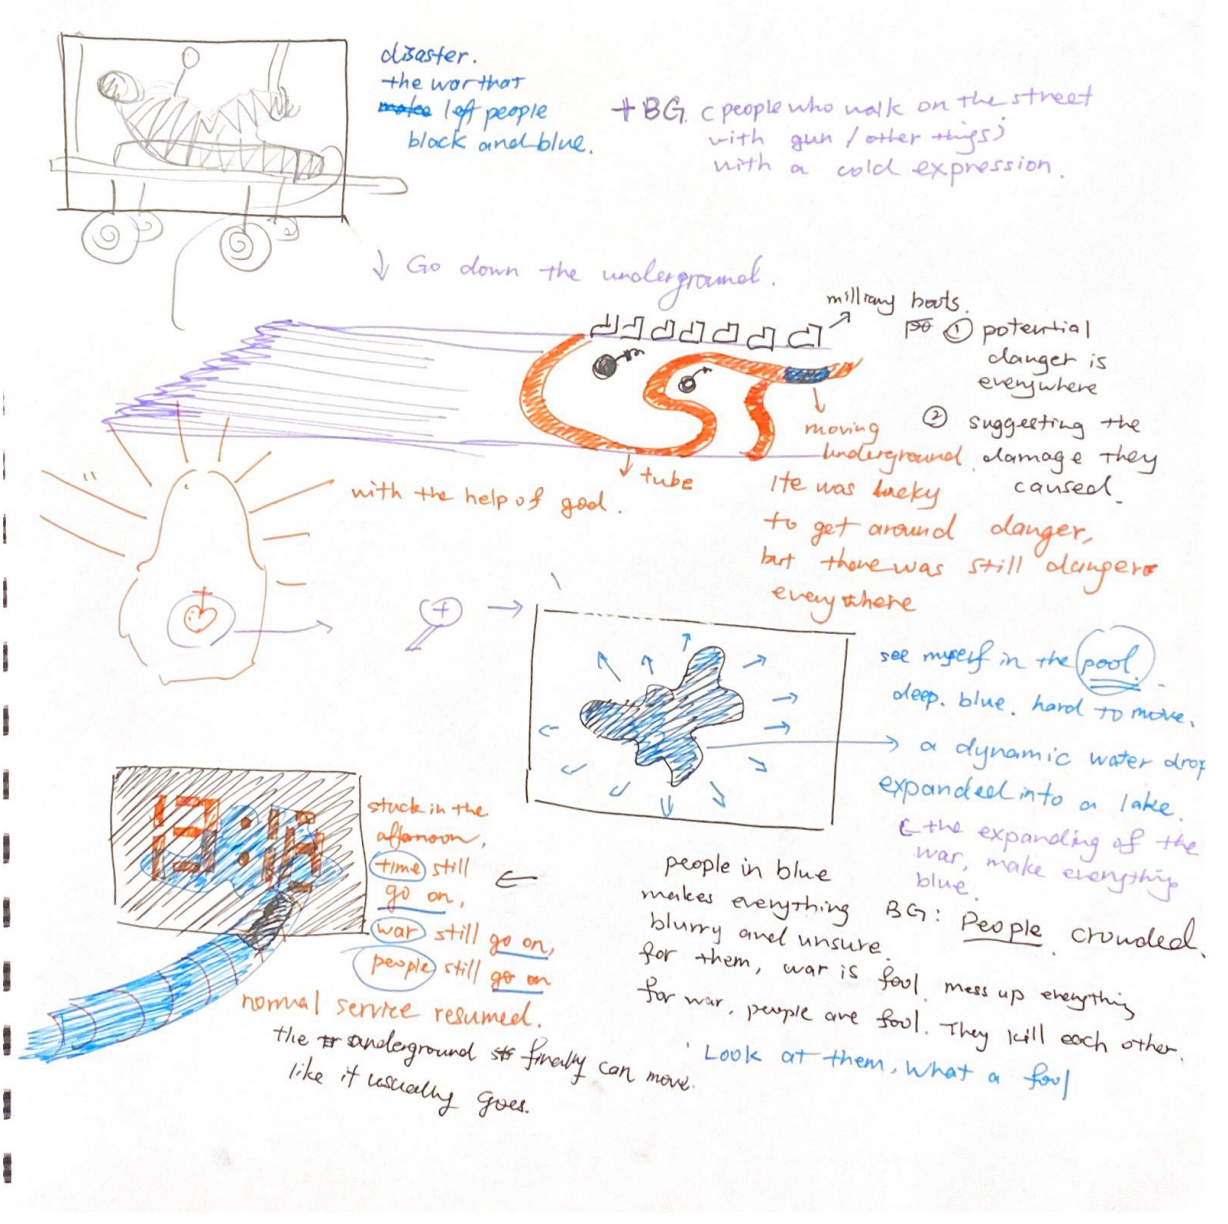 disaster.
the war that
make left people
black and blue.
+ BG. (people who walk on the street
with gun / other things)
with a cold expression.
↓ Go down the underground.
military boots.
① potential
danger is
everywhere
② suggesting the
damage they
caused.
moving
underground.
tube
with the help of god.
He was lucky
to get around danger,
but there was still danger
everywhere
see myself in the pool.
deep. blue. hard to move.
a dynamic water drop
expanded into a lake.
(the expanding of the
war, make everything
blue.
stuck in the
afternoon,
time still
go on,
war still go on,
people still go on
normal service resumed.
the underground finally can move
like it usually goes.
people in blue
makes everything
blurry and unsure.
for them, war is fool. mess up everything
for war, people are fool. They kill each other.
BG: People crowded.
Look at them, what a fool